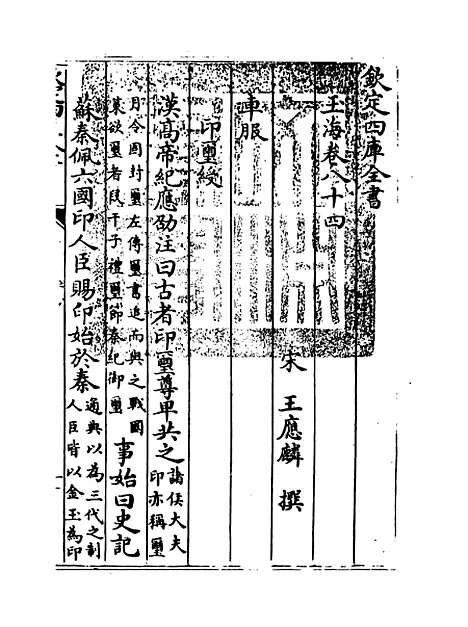 欽定四庫全書
玉海卷八十四
宋 王應麟 撰
車服
印璽綬
漢髙帝紀應劭注曰古者印璽尊卑共之諸侯大夫印亦稱璽
月令固封璽左傳璽書追而與之戰國策欲璽者段干子禮璽節秦紀御璽事始曰史記
蘇秦佩六國印人臣賜印始於秦通典以為三代之制人臣皆以金玉為印